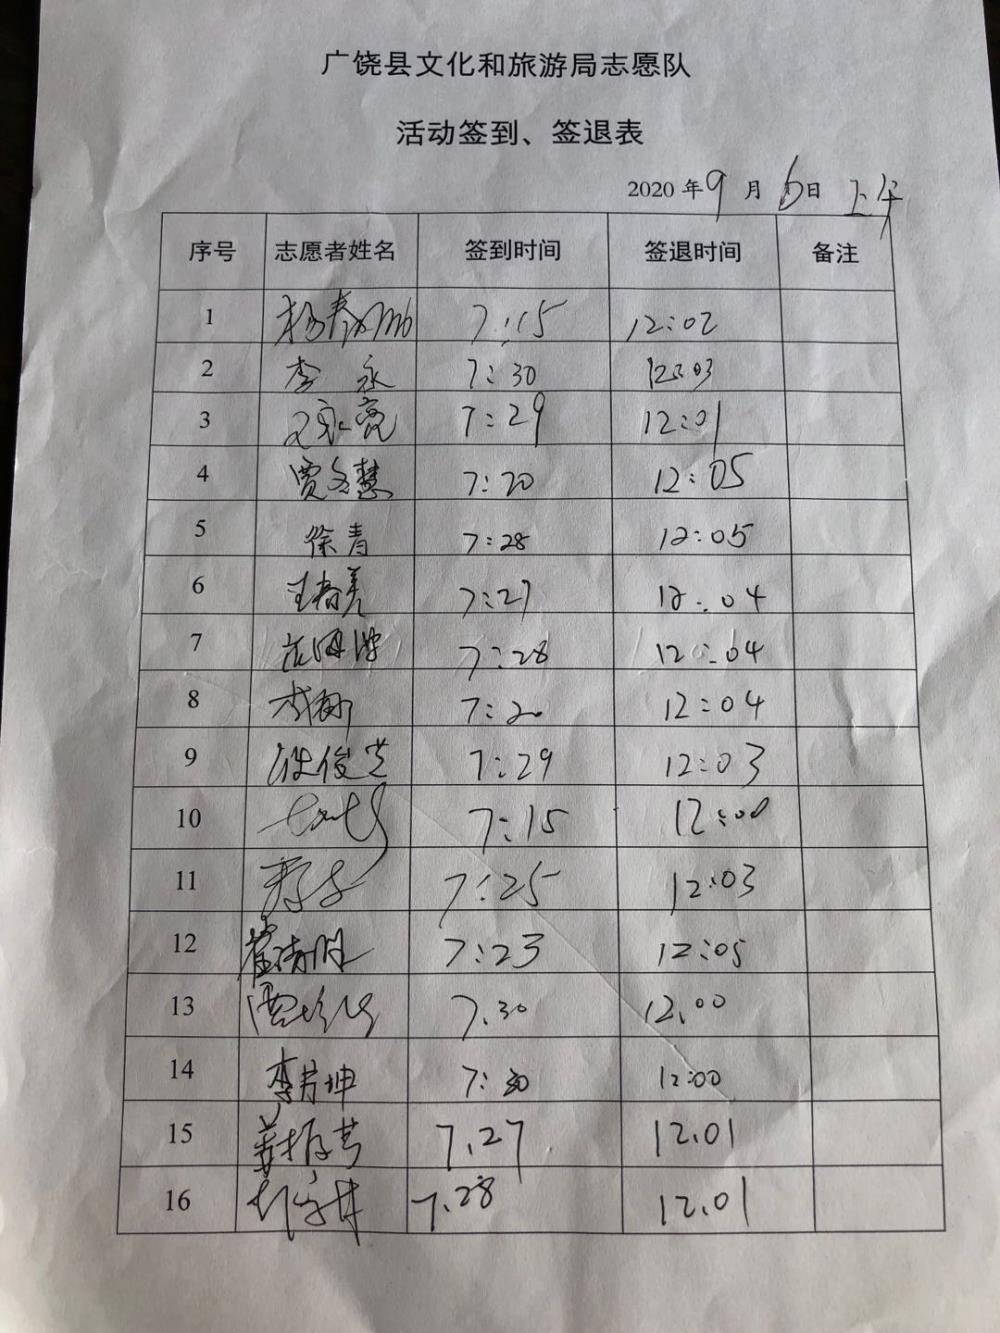 广饶县文化和旅游局志愿队
活动签到、签退表
2020 年 9 月 6 日 上午
序号 志愿者姓名 签到时间 签退时间 备注
1 7:15 12:02
2 李永 7:30 12:03
3 7:29 12:01
4 贾冬慧 7:20 12:05
5 徐青 7:28 12:05
6 王春美 7:27 12:04
7 7:28 12:04
8 李娜 7:20 12:04
9 俊芝 7:29 12:03
10 7:15 12:00
11 7:25 12:03
12 7:23 12:05
13 7.30 12.00
14 李芳坤 7:30 12:00
15 7.27 12.01
16 7.28 12.01